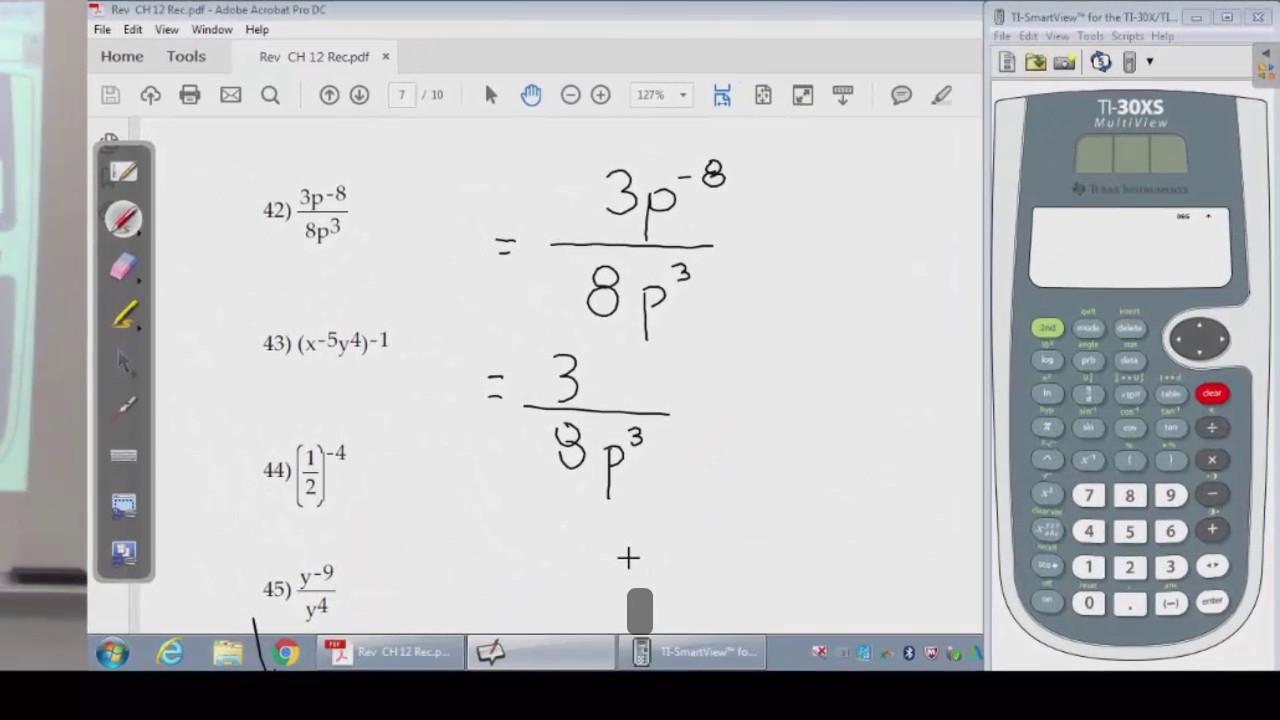 Rev CH 12 Rec.pdf - Adobe Acrobat Pro DC
File Edit View Window Help
Home Tools Rev CH 12 Rec.pdf ×
7 / 10 127%
42) 3p-8
8p3
= 3p-8
8p3
43) (x-5y4)-1
= 3
8p3
44) (1
2)-4
45) y-9
y4
Rev CH 12 Rec.p...
TI-SmartView™ fo...
TI-SmartView™ for the TI-30X/TI...
File Edit View Tools Scripts Help
TI-30XS
MultiView
TEXAS INSTRUMENTS
DEG
quit insert
2nd mode delete
angle stat
log prb data
ln table clear
hyp sin-1 cos-1 tan-1
π sin cos tan ÷
^ x-1 ( ) ×
x2 7 8 9 −
clear var
4 5 6 +
recall
sto▸ 1 2 3
off reset ans
on 0 . (−) enter